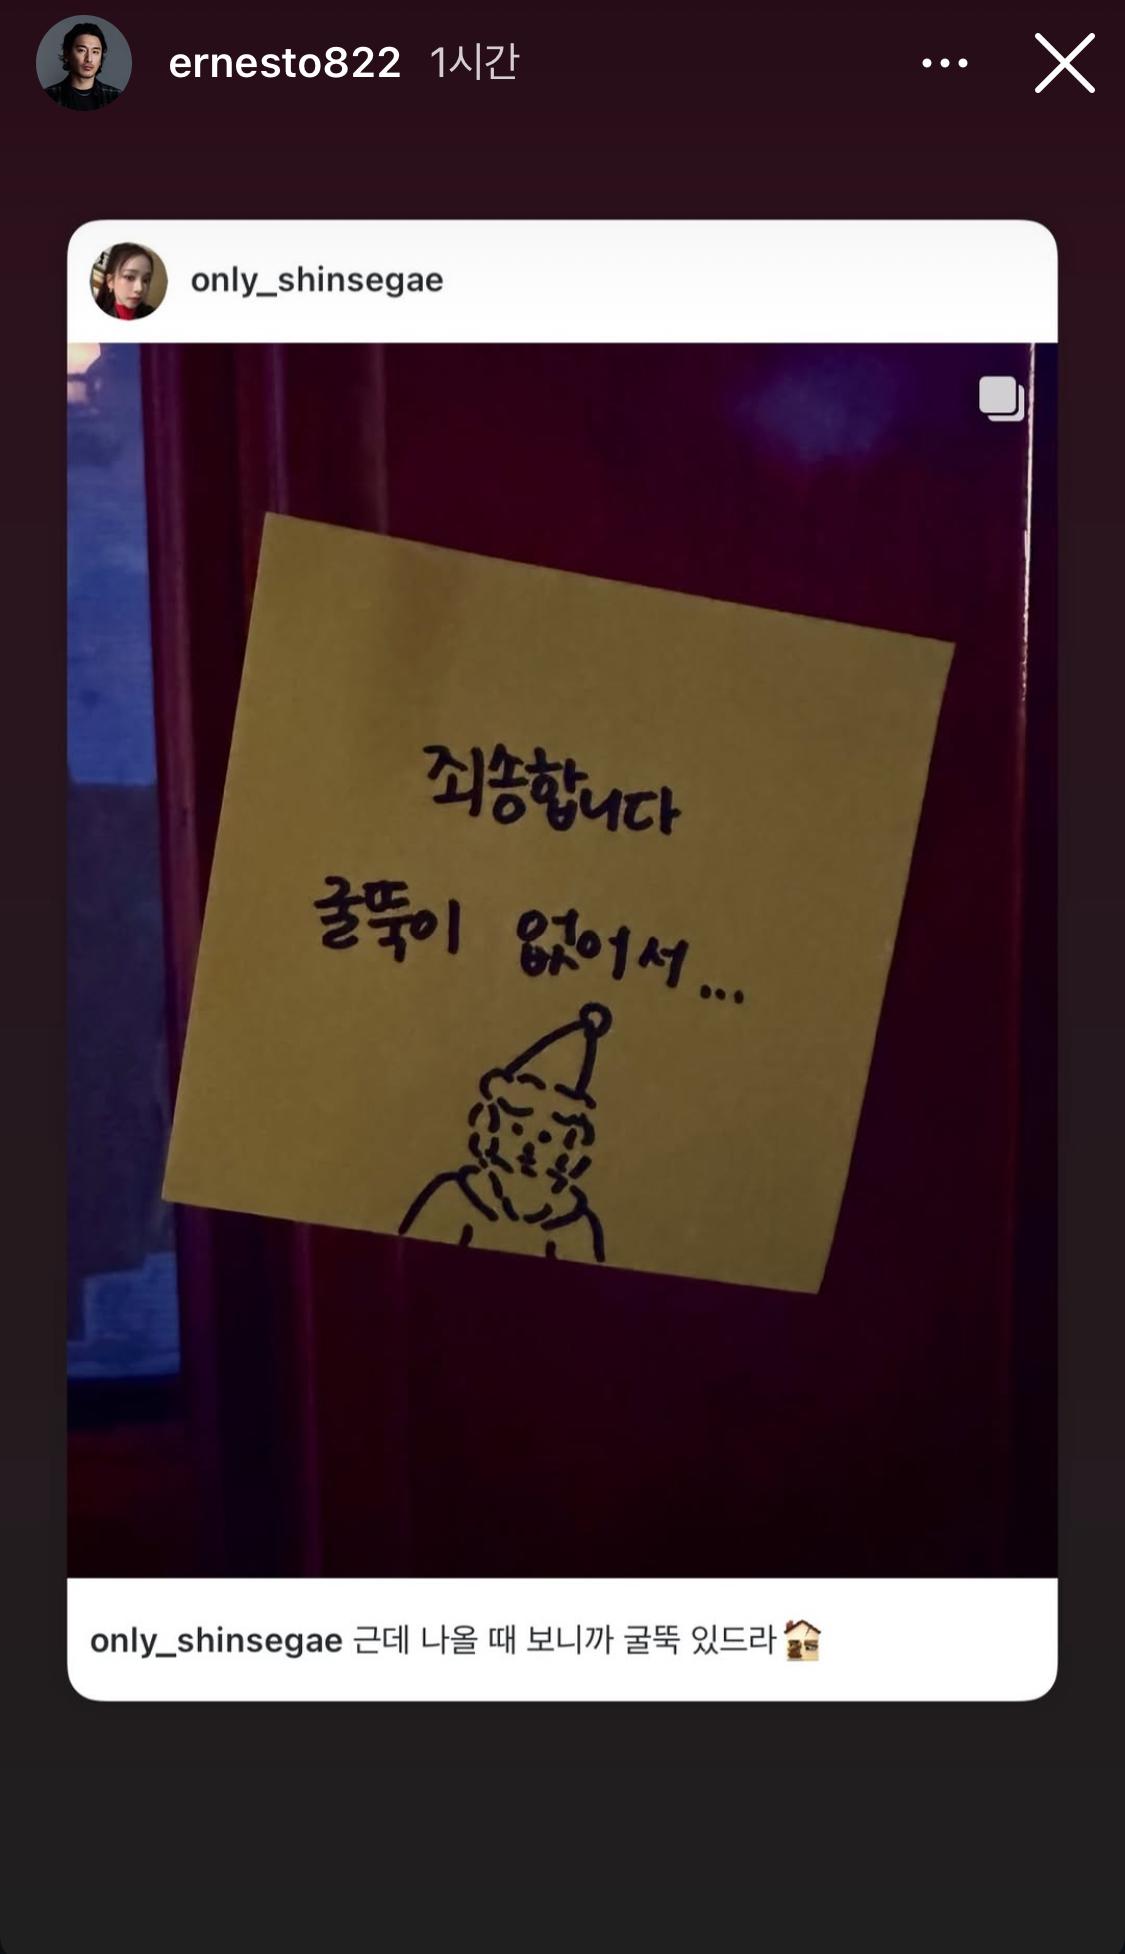 ernesto822 1시간
only_shinsegae
죄송합니다
굴뚝이 없어서...
only_shinsegae 근데 나올 때 보니까 굴뚝 있드라🏠